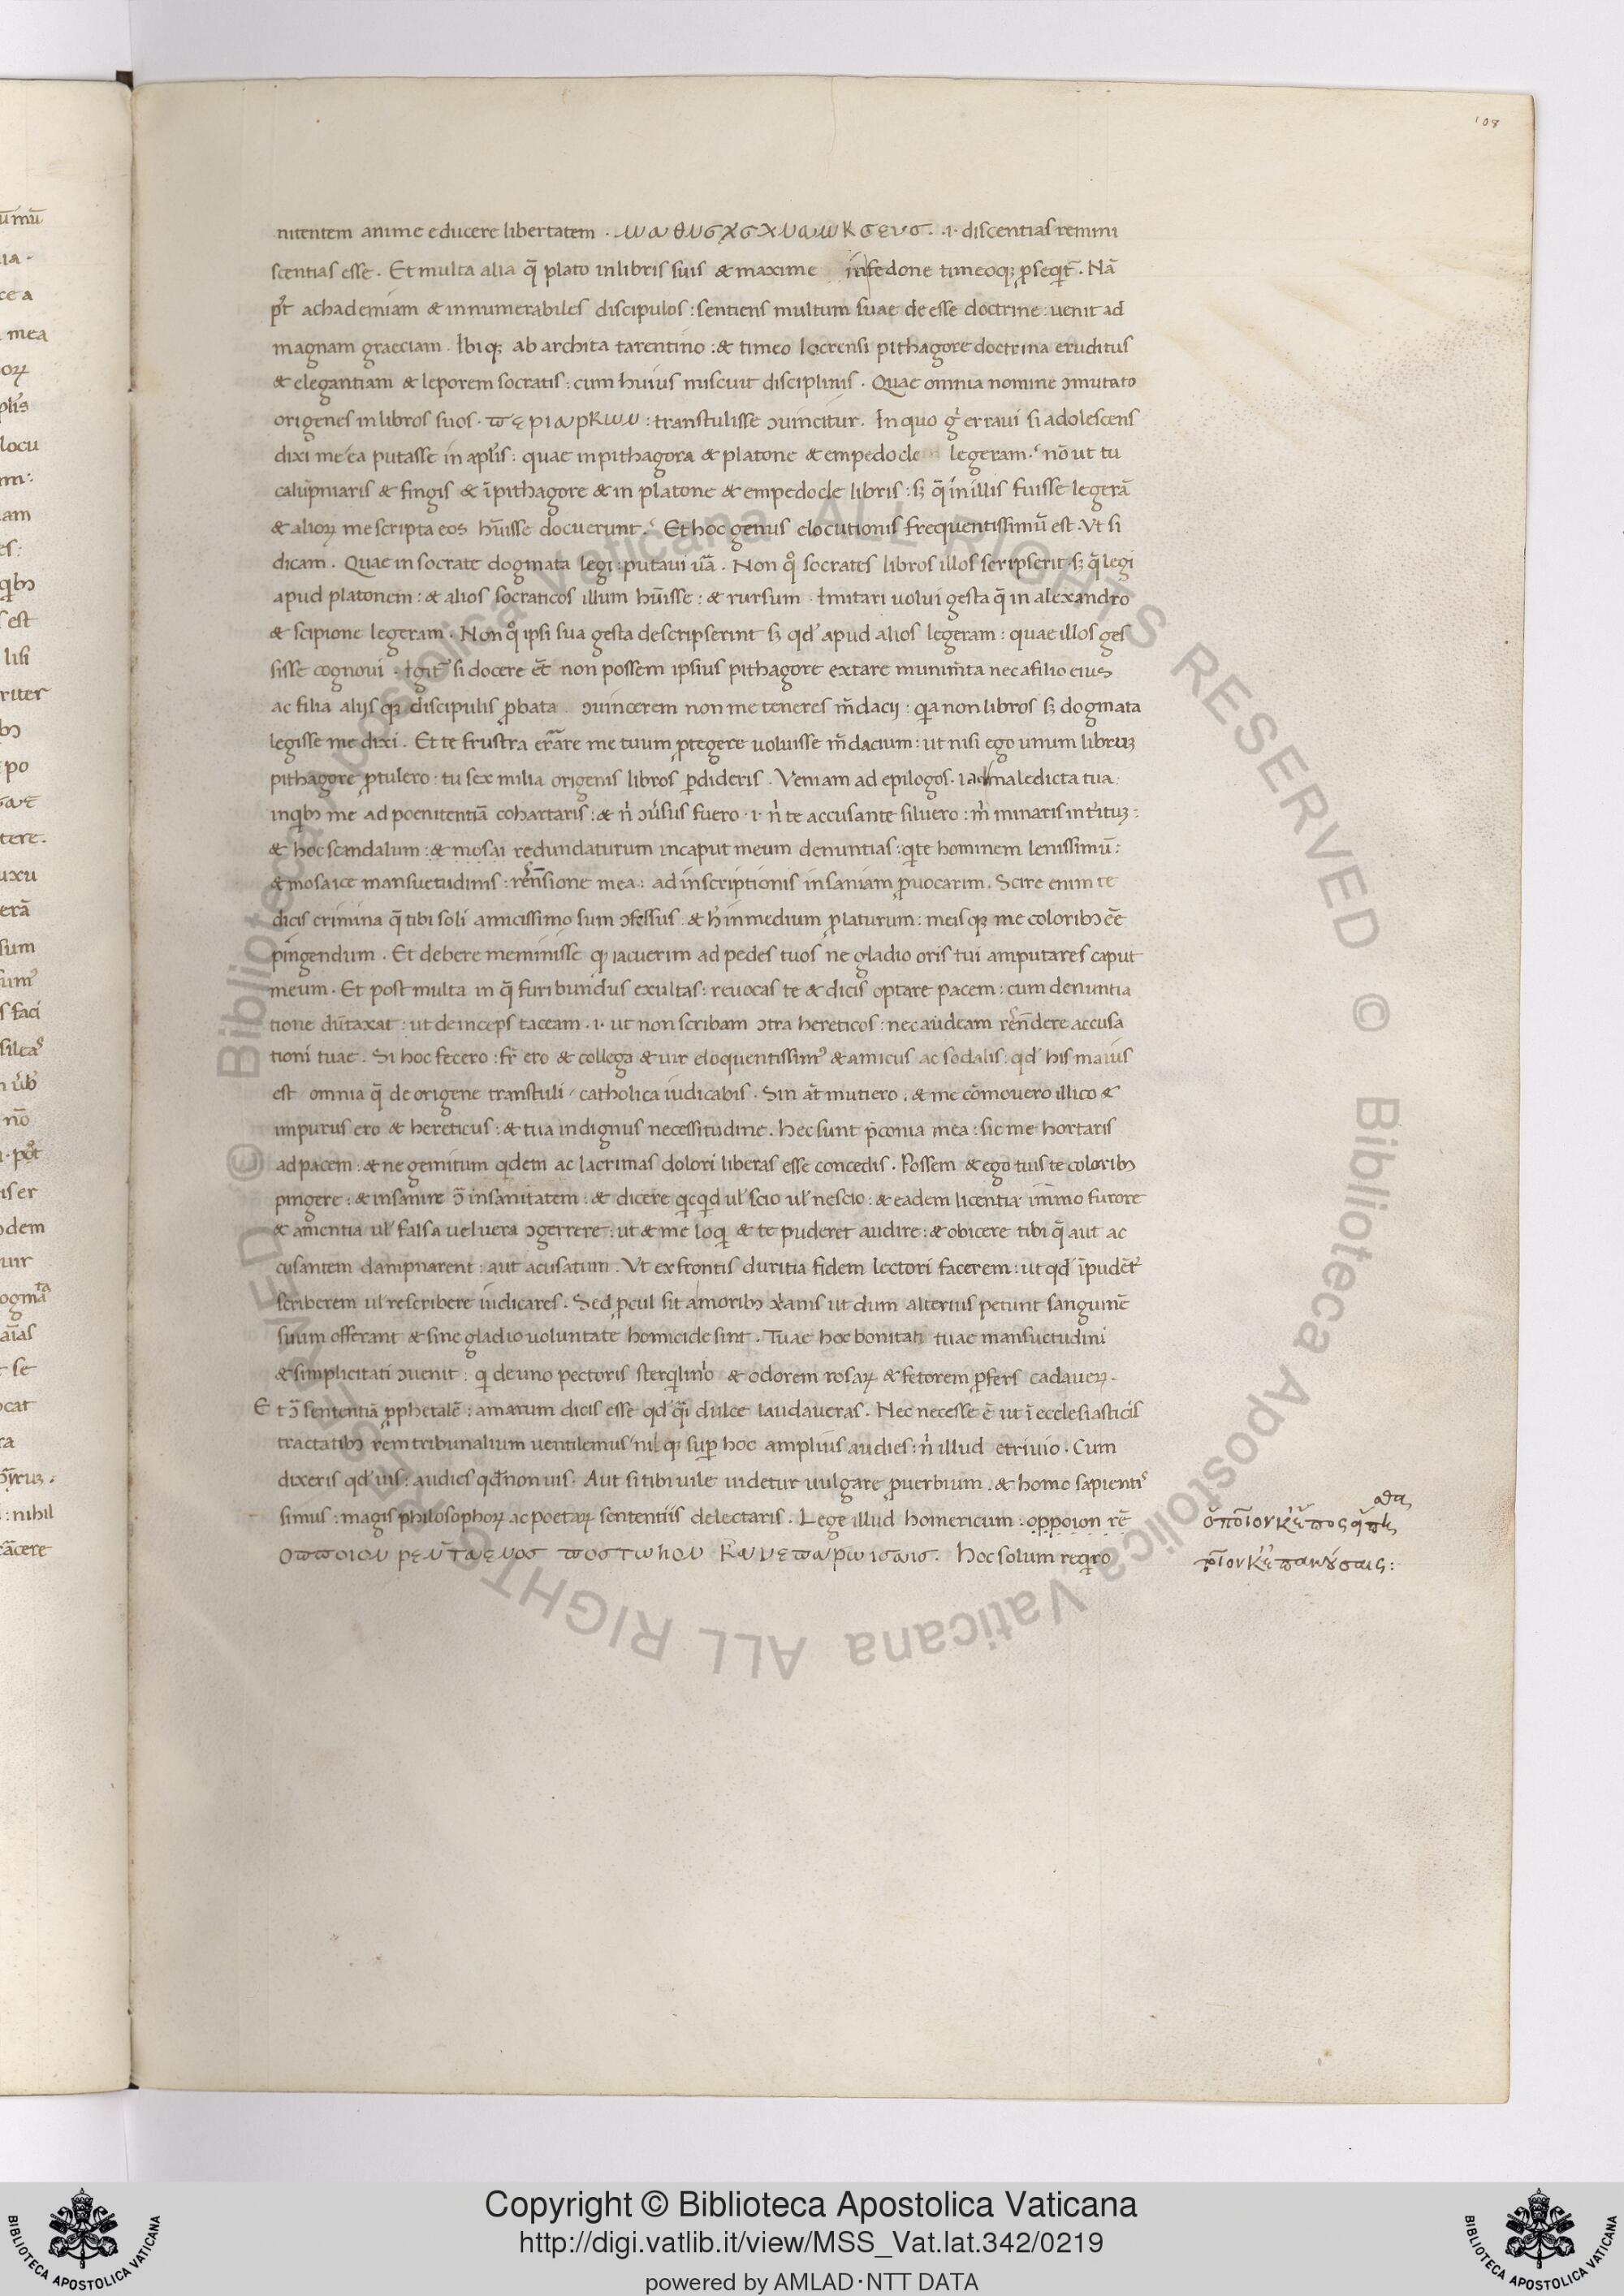 108
nitentem anime educere libertatem . ωαθυσχσχυαωκσευσ. .i. discentias remini
scentias esse . Et multa alia q̄ plato inlibris suis & maxime infedone timeoqꝫ ꝓseqit᷑ . Nā
p᷑t achademiam & innumerabiles discipulos : sentiens multum suae deesse doctrine : uenit ad
magnam graeciam . Ibiqꝫ ab archita tarentino : & timeo locrensi pithagore doctrina eruditus
& elegantiam & leporem socratis : cum huius miscuit disciplinis . Quae omnia nomine ɔmutato
origenes inlibros suos . ϖεριαρκων : transtulisse ɔuincitur . In quo gͥ erraui si adolescens
dixi me ea putasse in aplīs : quae inpithagora & platone & empedocle legeram . nō ut tu
calūpniaris & fingis & īpithagore & in platone & empedocle libris : sꝫ q̄ inillis fuisse legerā
& alioꝝ me scripta eos hūisse docuerunt . Et hoc genus elocutionis frequentissimū est . Vt si
dicam . Quae in socrate dogmata legi : putaui uā . Non qͦ socrates libros illos scripserit . sꝫ q̄ legi
apud platonem : & alios socraticos illum hūisse : & rursum . Imitari uolui gesta q̄ in alexandro
& scipione legeram . Non qͦ ipsi sua gesta descripserint sꝫ qd' apud alios legeram : quae illos ges
sisse cognoui . Igit᷑ si docere et̄ non possem ipsius pithagore extare munim̄ta nec afilio eius
ac filia alijsqꝫ discipulis ꝓbata ɔuincerem non me teneres m̄dacij : qa non libros sꝫ dogmata
legisse me dixi . Et te frustra errare me tuum ꝓtegere uoluisse m̄dacium : ut nisi ego unum libruꝫ
pithagore ꝓtulero . tu sex milia origenis libros ꝑdideris . Veniam ad epilogos . i ad maledicta tua
inqibꝫ me ad poenitentiā cohartaris : & nͥ ɔuͥsus fuero . i . nͥ te accusante siluero : m̄ minaris int̄ituꝫ :
& hoc scandalum : & mosai redundaturum incaput meum denuntias : qite hominem lenissimū :
& mosaice mansuetudinis : rēn̄sione mea : ad inscriptionis insaniam ꝓuocarim . Scire enim te
dicis crimina q̄ tibi soli amicissimo sum ɔfessus . & hͨ inmedium ꝓlaturum : meisqꝫ me coloribꝫ eē
pingendum . Et debere meminisse qꝫ iacuerim ad pedes tuos ne gladio oris tui amputares caput
meum . Et post multa in q̄ furibundus exultas : reuocas te & dicis optare pacem : cum denuntia
tione dūtaxat : ut deinceps taceam . i . ut non scribam ɔtra hereticos : nec audeam rēn̄dere accusa
tioni tuae . Si hoc fecero : fr̄ ero & collega & uir eloquentissim᷒ & amicus ac sodalis : qd' his maius
est omnia q̄ de origene transtuli / catholica iudicabis . Sin aūt mutiero . & me cōmouero illico &
impurus ero & hereticus : & tua indignus necessitudine . Hec sunt p̄conia mea : sic me hortaris
ad pacem : & ne gemitum qidem ac lacrimas dolori liberas esse concedis . Possem & ego tuis te coloribꝫ
pingere : & insanire ɔ̄ insanitatem : & dicere qicqid ul' scio ul' nescio : & eadem licentia immo furore
& amentia ul' falsa uel uera ɔgerrere : ut & me loqi & te puderet audire : & obicere tibi q̄ aut ac
cusantem dampnarent : aut acusatum . Vt ex frontis duritia fidem lectori facerem : ut qd' īpudēt᷑
scriberem ul' rescribere iudicares . Sed ꝓcul sit a moribꝫ xͥanis ut dum alterius petunt sanguinē
suum offerant & sine gladio uoluntate homicide sint . Tuae hoc bonitati tuae mansuetudini
& simplicitati ɔuenit : qi de uno pectoris sterqilinio & odorem rosaꝝ & fetorem ꝓfers cadaueꝝ .
Et ɔ̄ sententiā ꝓphetalē : amarum dicis esse qd' qͣi dulce laudaueras . Nec necesse ē ut ī ecclesiasticis
tractatibꝫ rem tribunalium uentilemus / nilqꝫ suꝑ hoc amplius audies : nͥ illud etriuio . Cum
dixeris qd' uis : audies qd' non uis . Aut si tibi uile uidetur uulgare ꝓuerbium . & homo sapientis
simus : magis philosophoꝝ ac poetaꝝ sententiis delectaris . Lege illud homericum : oppoion rē
οϖϖοιον ρευταενοσ ϖοστωhον καυεϖαρωισαισ . Hoc solum reqiro
ὁποῖον κ' ἔπος
κ' ἐπακούσαις :
Copyright © Biblioteca Apostolica Vaticana
http://digi.vatlib.it/view/MSS_Vat.lat.342/0219
powered by AMLAD·NTT DATA